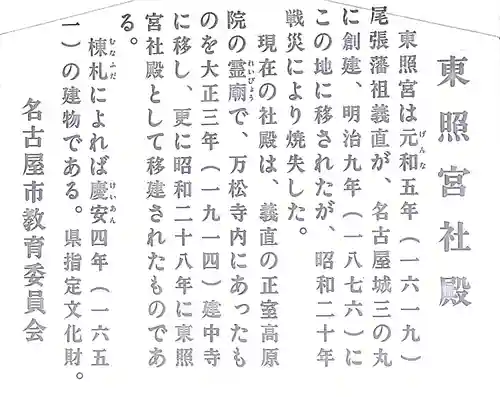 東照宮社殿
東照宮は元和五年（一六一九）
尾張藩祖義直が、名古屋城三の丸
に創建、明治九年（一八七六）に
この地に移されたが、昭和二十年
戦災により焼失した。
現在の社殿は、義直の正室高原
院の霊廟で、万松寺内にあったも
のを大正三年（一九一四）建中寺
に移し、更に昭和二十八年に東照
宮社殿として移建されたものであ
る。
棟札によれば慶安四年（一六五
一）の建物である。県指定文化財。
名古屋市教育委員会